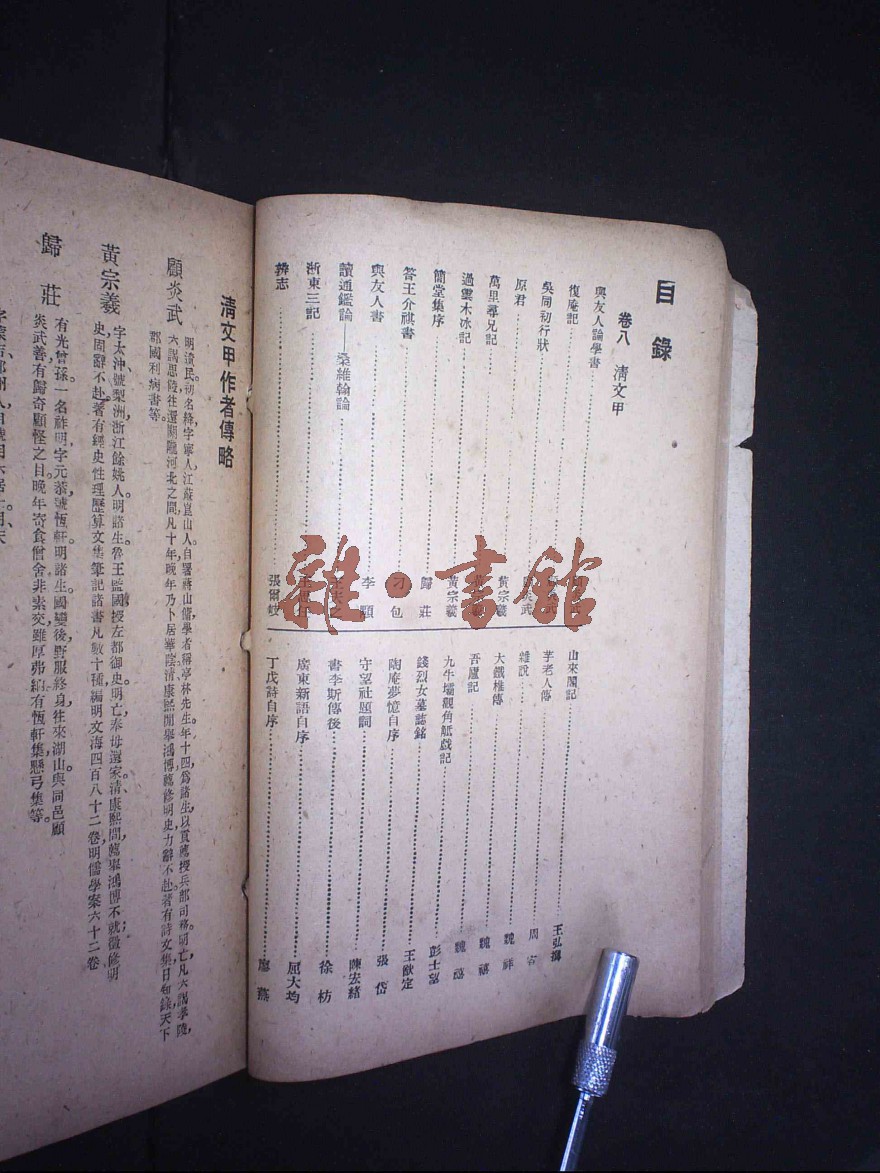 目錄
卷八　清文甲
與友人論學書
復庵記
吳同初行狀
原君
萬里尋兄記　黃宗羲
過雲木冰記
簡堂集序　黃宗羲　歸莊
答王介祺書　刁包
與友人書　李顒
讀通鑑論——桑維翰論
浙東三記
辨志　張爾岐
山來閣記　王弘撰
芋老人傳　周容
雜說　魏祥
大鐵椎傳　魏禧
吾廬記　魏禧
九牛壩觀角觝戲記　彭士望
錢烈女墓誌銘　王猷定
陶庵夢憶自序　張岱
守望社題詞　陳宏緒
書李斯傳後　徐枋
廣東新語自序　屈大均
丁戊詩自序　廖燕
雜·書館
清文甲作者傳略
顧炎武　明遺民初名絳字寧人江蘇崑山人自署蔣山傭學者稱亭林先生年十四爲諸生以貢薦授兵部司務明亡凡六謁孝陵，
六謁思陵往還關隴河北之間凡十年晚年乃卜居華陰清康熙間舉鴻博薦修明史力辭不赴著有詩文集日知錄天下
郡國利病書等。
黃宗羲　字太沖號梨洲浙江餘姚人明諸生魯王監國授左都御史明亡奉母還家清康熙間薦舉鴻博不就徵修明
史局辭不赴著有經史性理歷算文集筆記諸書凡數十種編明文海四百八十二卷明儒學案六十二卷
歸莊　有光曾孫一名祚明字元恭號恆軒明諸生國變後野服終身往來湖山與同邑顧
炎武善有歸奇顧怪之目晚年寄食僧舍非素交雖厚弗納有恆軒集懸弓集等。